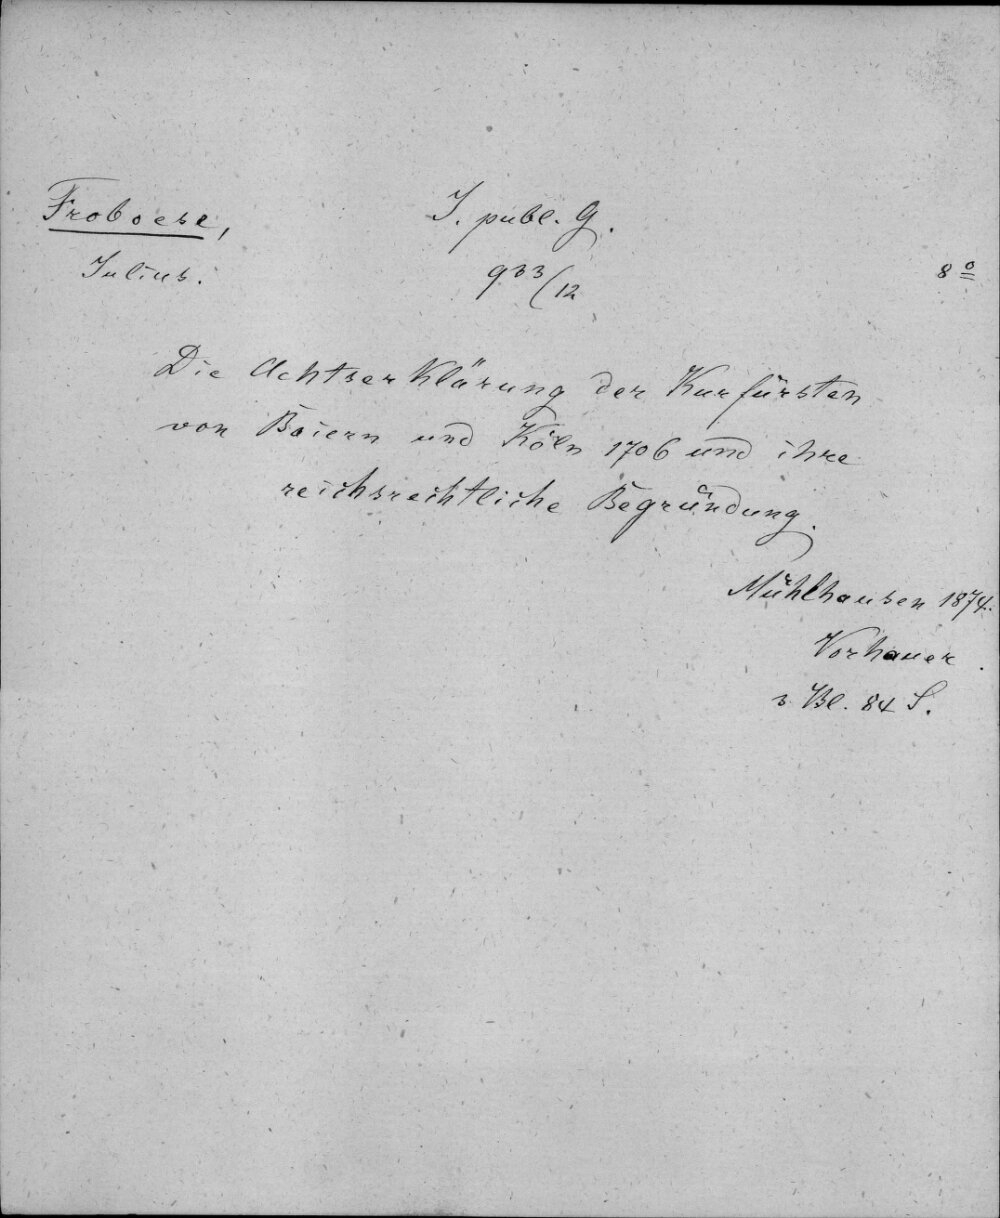 Froboese,
Julius.
J. publ. G.
933/12
8º
Die Achtserklärung der Kurfürsten
von Baiern und Köln 1706 und ihre
reichsrechtliche Begründung.
Mühlhausen 1874.
Vorhauer.
3 Bl. 84 S.